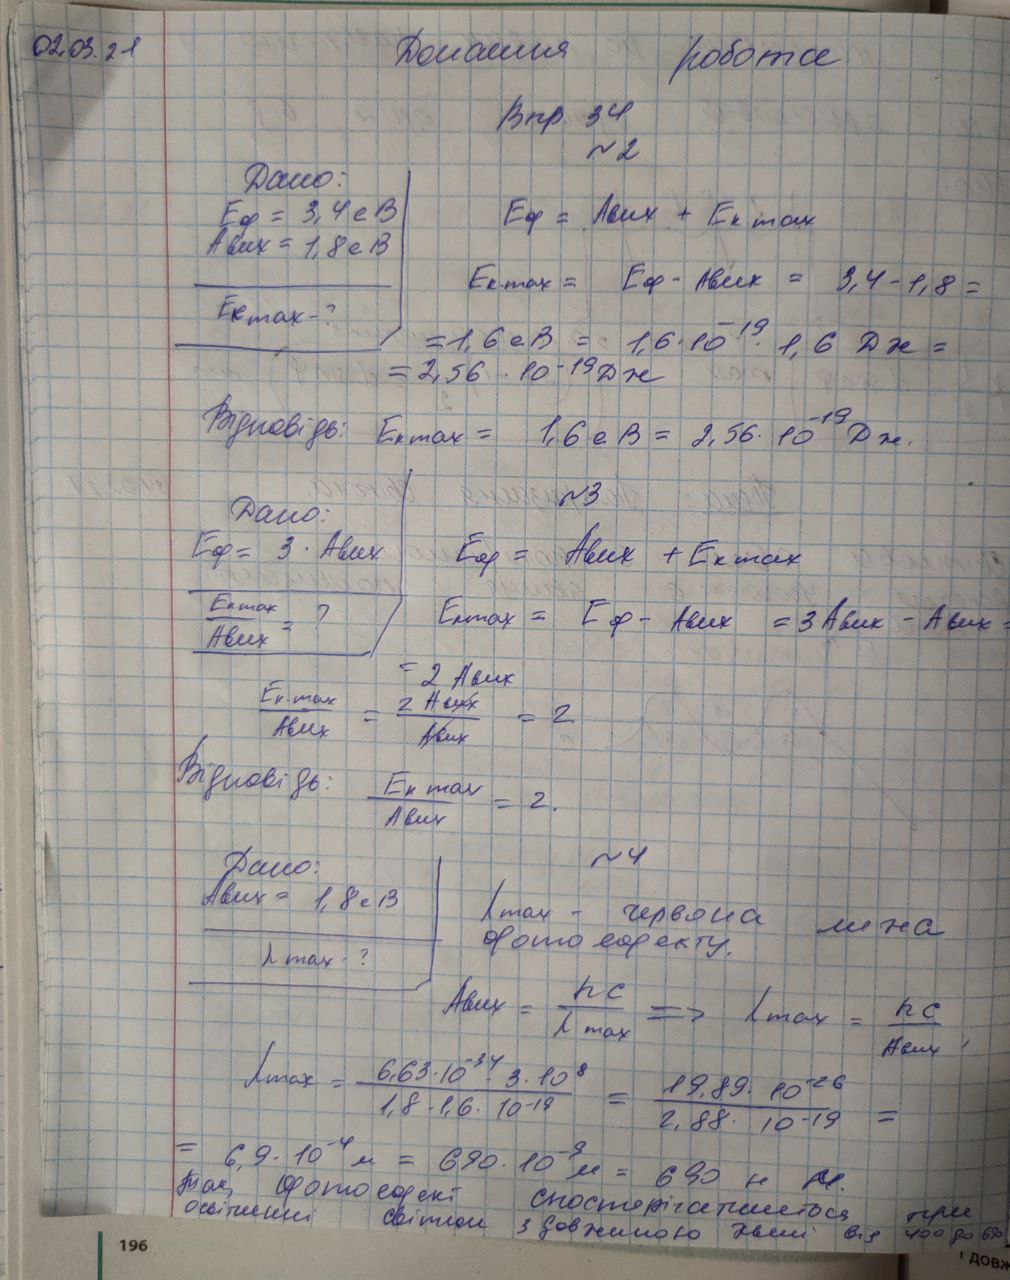 02.03.21
Домашня робота
Впр. 34
№2
Дано:
Eф = 3,4 еВ
Aвих = 1,8 еВ
Eк max - ?
Eф = Aвих + Eк max
Eк max = Eф - Aвих = 3,4 - 1,8 =
= 1,6 еВ = 1,6 · 10⁻¹⁹ · 1,6 Дж =
= 2,56 · 10⁻¹⁹ Дж
Відповідь: Eк max = 1,6 еВ = 2,56 · 10⁻¹⁹ Дж.
№3
Дано:
Eф = 3 · Aвих
Eк max / Aвих = ?
Eф = Aвих + Eк max
Eк max = Eф - Aвих = 3 Aвих - Aвих =
= 2 Aвих
Eк max / Aвих = 2 Aвих / Aвих = 2
Відповідь: Eк max / Aвих = 2.
№4
Дано:
Aвих = 1,8 еВ
λ max - ?
λ max - червона межа
фотоефекту.
Aвих = hc / λ max => λ max = hc / Aвих ,
λ max = 6,63 · 10⁻³⁴ · 3 · 10⁸ / 1,8 · 1,6 · 10⁻¹⁹ = 19,89 · 10⁻²⁶ / 2,88 · 10⁻¹⁹ =
= 6,9 · 10⁻⁴ м = 690 · 10⁻⁹ м = 690 н м.
Так, фотоефект спостерігатиметься при
освітленні світлом з довжиною хвилі від 400 до 690
196
і довж